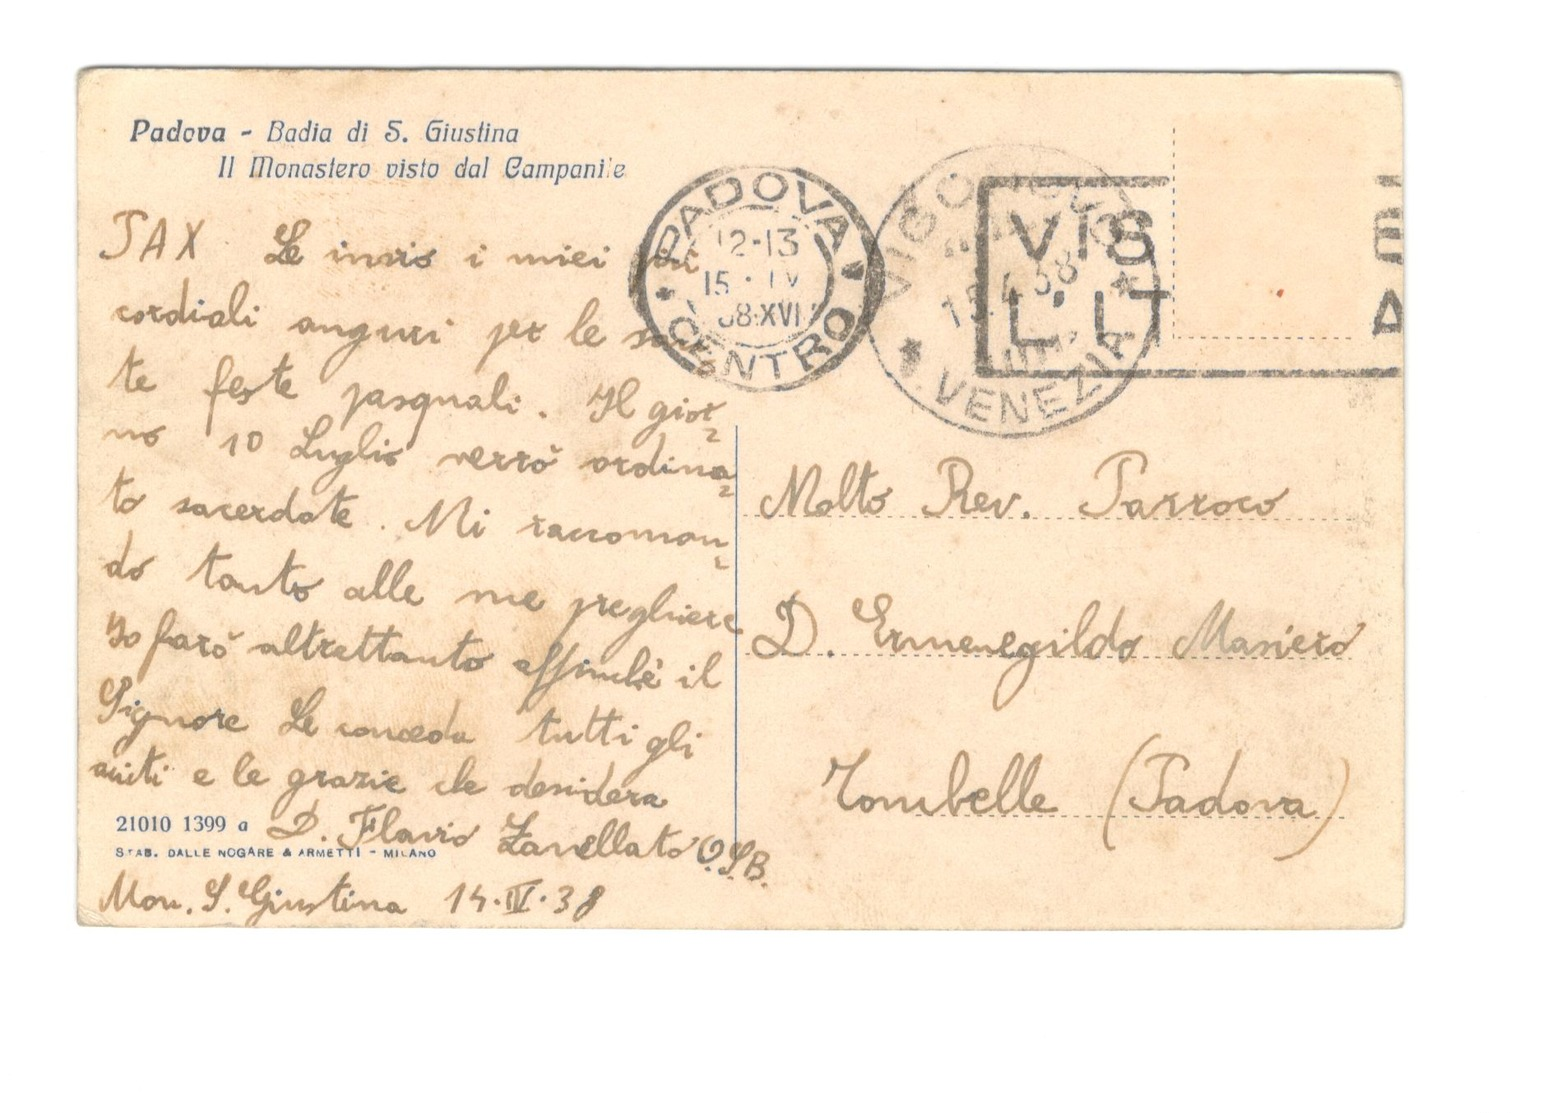 Padova - Badia di S. Giustina
Il Monastero visto dal Campanile
PAX Le invio i miei
cordiali auguri per le
te feste pasquali. Il gior=
no 10 Luglio verrò ordina=
to sacerdote. Mi raccoman=
do tanto alle sue preghiere
Io farò altrettanto affinchè il
Signore Le conceda tutti gli
aiuti e le grazie che desidera
D. Flavio Zanellato O.S.B.
Mon. S. Giustina 14·IV·38
21010 1399 a
STAB. DALLE NOGARE & ARMETTI - MILANO
PADOVA
12-13
15·IV
38·XVI
CENTRO
VIGO
15.4.38
VENEZIA
VIS
L'IT
Molto Rev. Parroco
D. Ermenegildo Masiero
Tombelle (Padova)